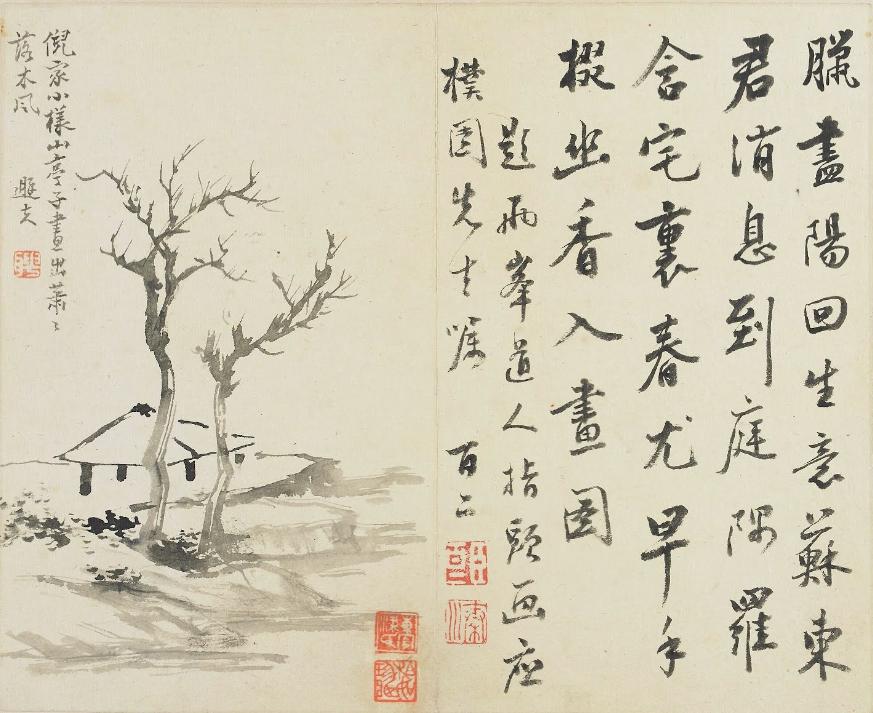 臘盡陽回生意蘇東
君消息到庭隅羅
含宅裏春尤早手
掇幽香入畫圖
題兩峯道人指頭画应
樸園先生嘱 百二
倪家小樣山亭子畫出蕭〻
落木風 遯夫